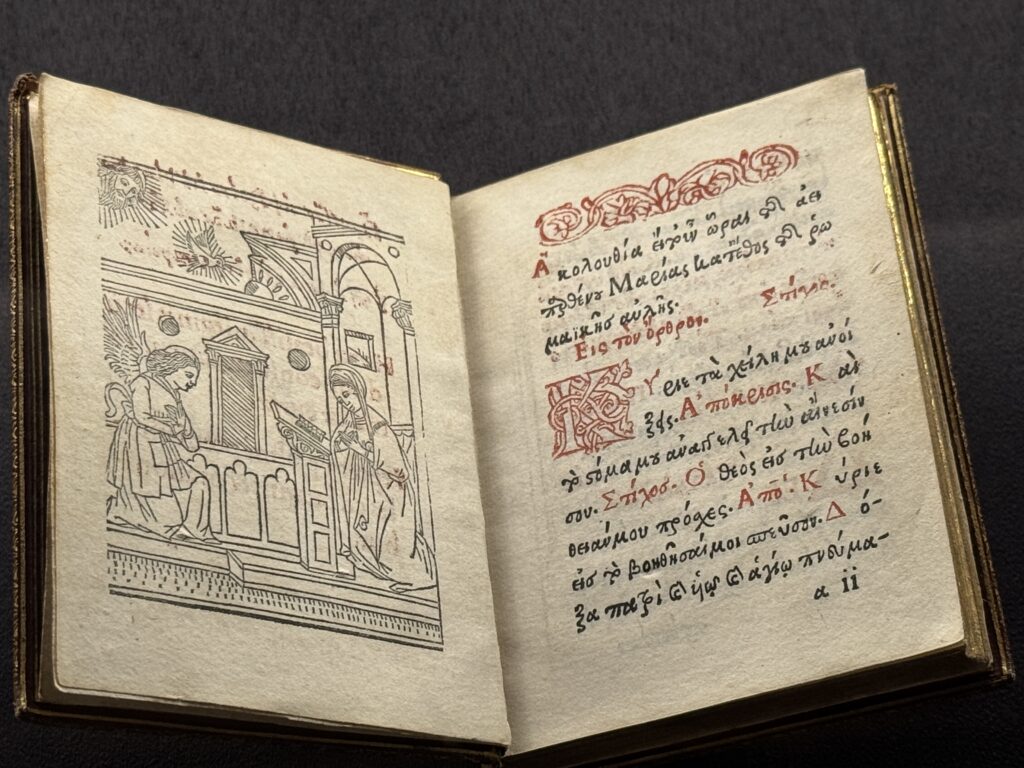 Ἀκολουθία ἐκ τῶν ὡρῶν τῆς ἀει
πρθένου Μαρίας κατ' ἔθος τῆς ῥω
μαϊκῆς αὐλῆς.
Εἰς τὸν ὄρθρον. Στίχος.
Κύριε τὰ χείλη μου ἀνοί
ξεις. Ἀπόκρισις. Καὶ
τὸ στόμα μου ἀναγγελεῖ τὴν αἴνεσίν
σου. Στίχος. Ὁ θεὸς εἰς τὴν βοή
θειάν μου πρόσχες. Ἀπό. Κύριε
εἰς τὸ βοηθῆσαί μοι σπεῦσον. Δό-
ξα πατρὶ καὶ υἱῷ καὶ ἁγίῳ πνεύμα-
α ii